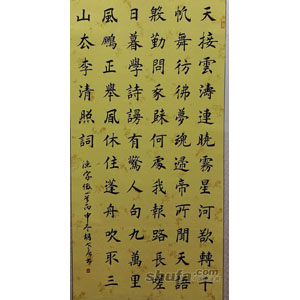 天接雲濤連曉霧星河欲轉千
帆舞彷彿夢魂歸帝所聞天語
殷勤問我歸何處我報路長嗟
日暮學詩謾有驚人句九萬里
風鵬正舉風休住蓬舟吹取三
山去李清照詞
漁家傲一首丙申冬
shufa.com